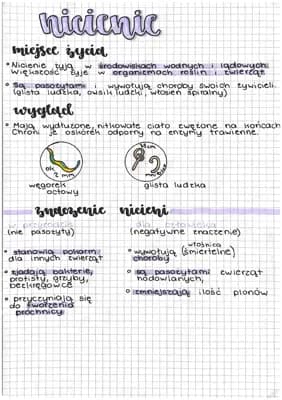 nicienie
miejsce życia
• Nicienie żyją w środowiskach wodnych i lądowych
większość żyje w organizmach roślin i zwierząt
• Są pasożytami i wywołują choroby swoich żywicieli
(glista ludzka, owsik ludzki, włosień spiralny)
wygląd
• Mają wydłużone, nitkowate ciało zwężone na końcach
Chroni je oskórek odporny na enzymy trawienne.
ok. 2 mm
węgorek
octowy
glista ludzka
znaczenie nicieni
w przyrodzie
(nie pasożyty)
• stanowią pokarm
dla innych zwierząt
• zjadają bakterie,
protisty, grzyby,
bezkręgowce
• przyczyniają się
do tworzenia
próchnicy
dla człowieka
(negatywne znaczenie)
włośnica
• wywołują (śmiertelne)
choroby
• są pasożytami zwierząt
hodowlanych,
• zmniejszają ilość plonów